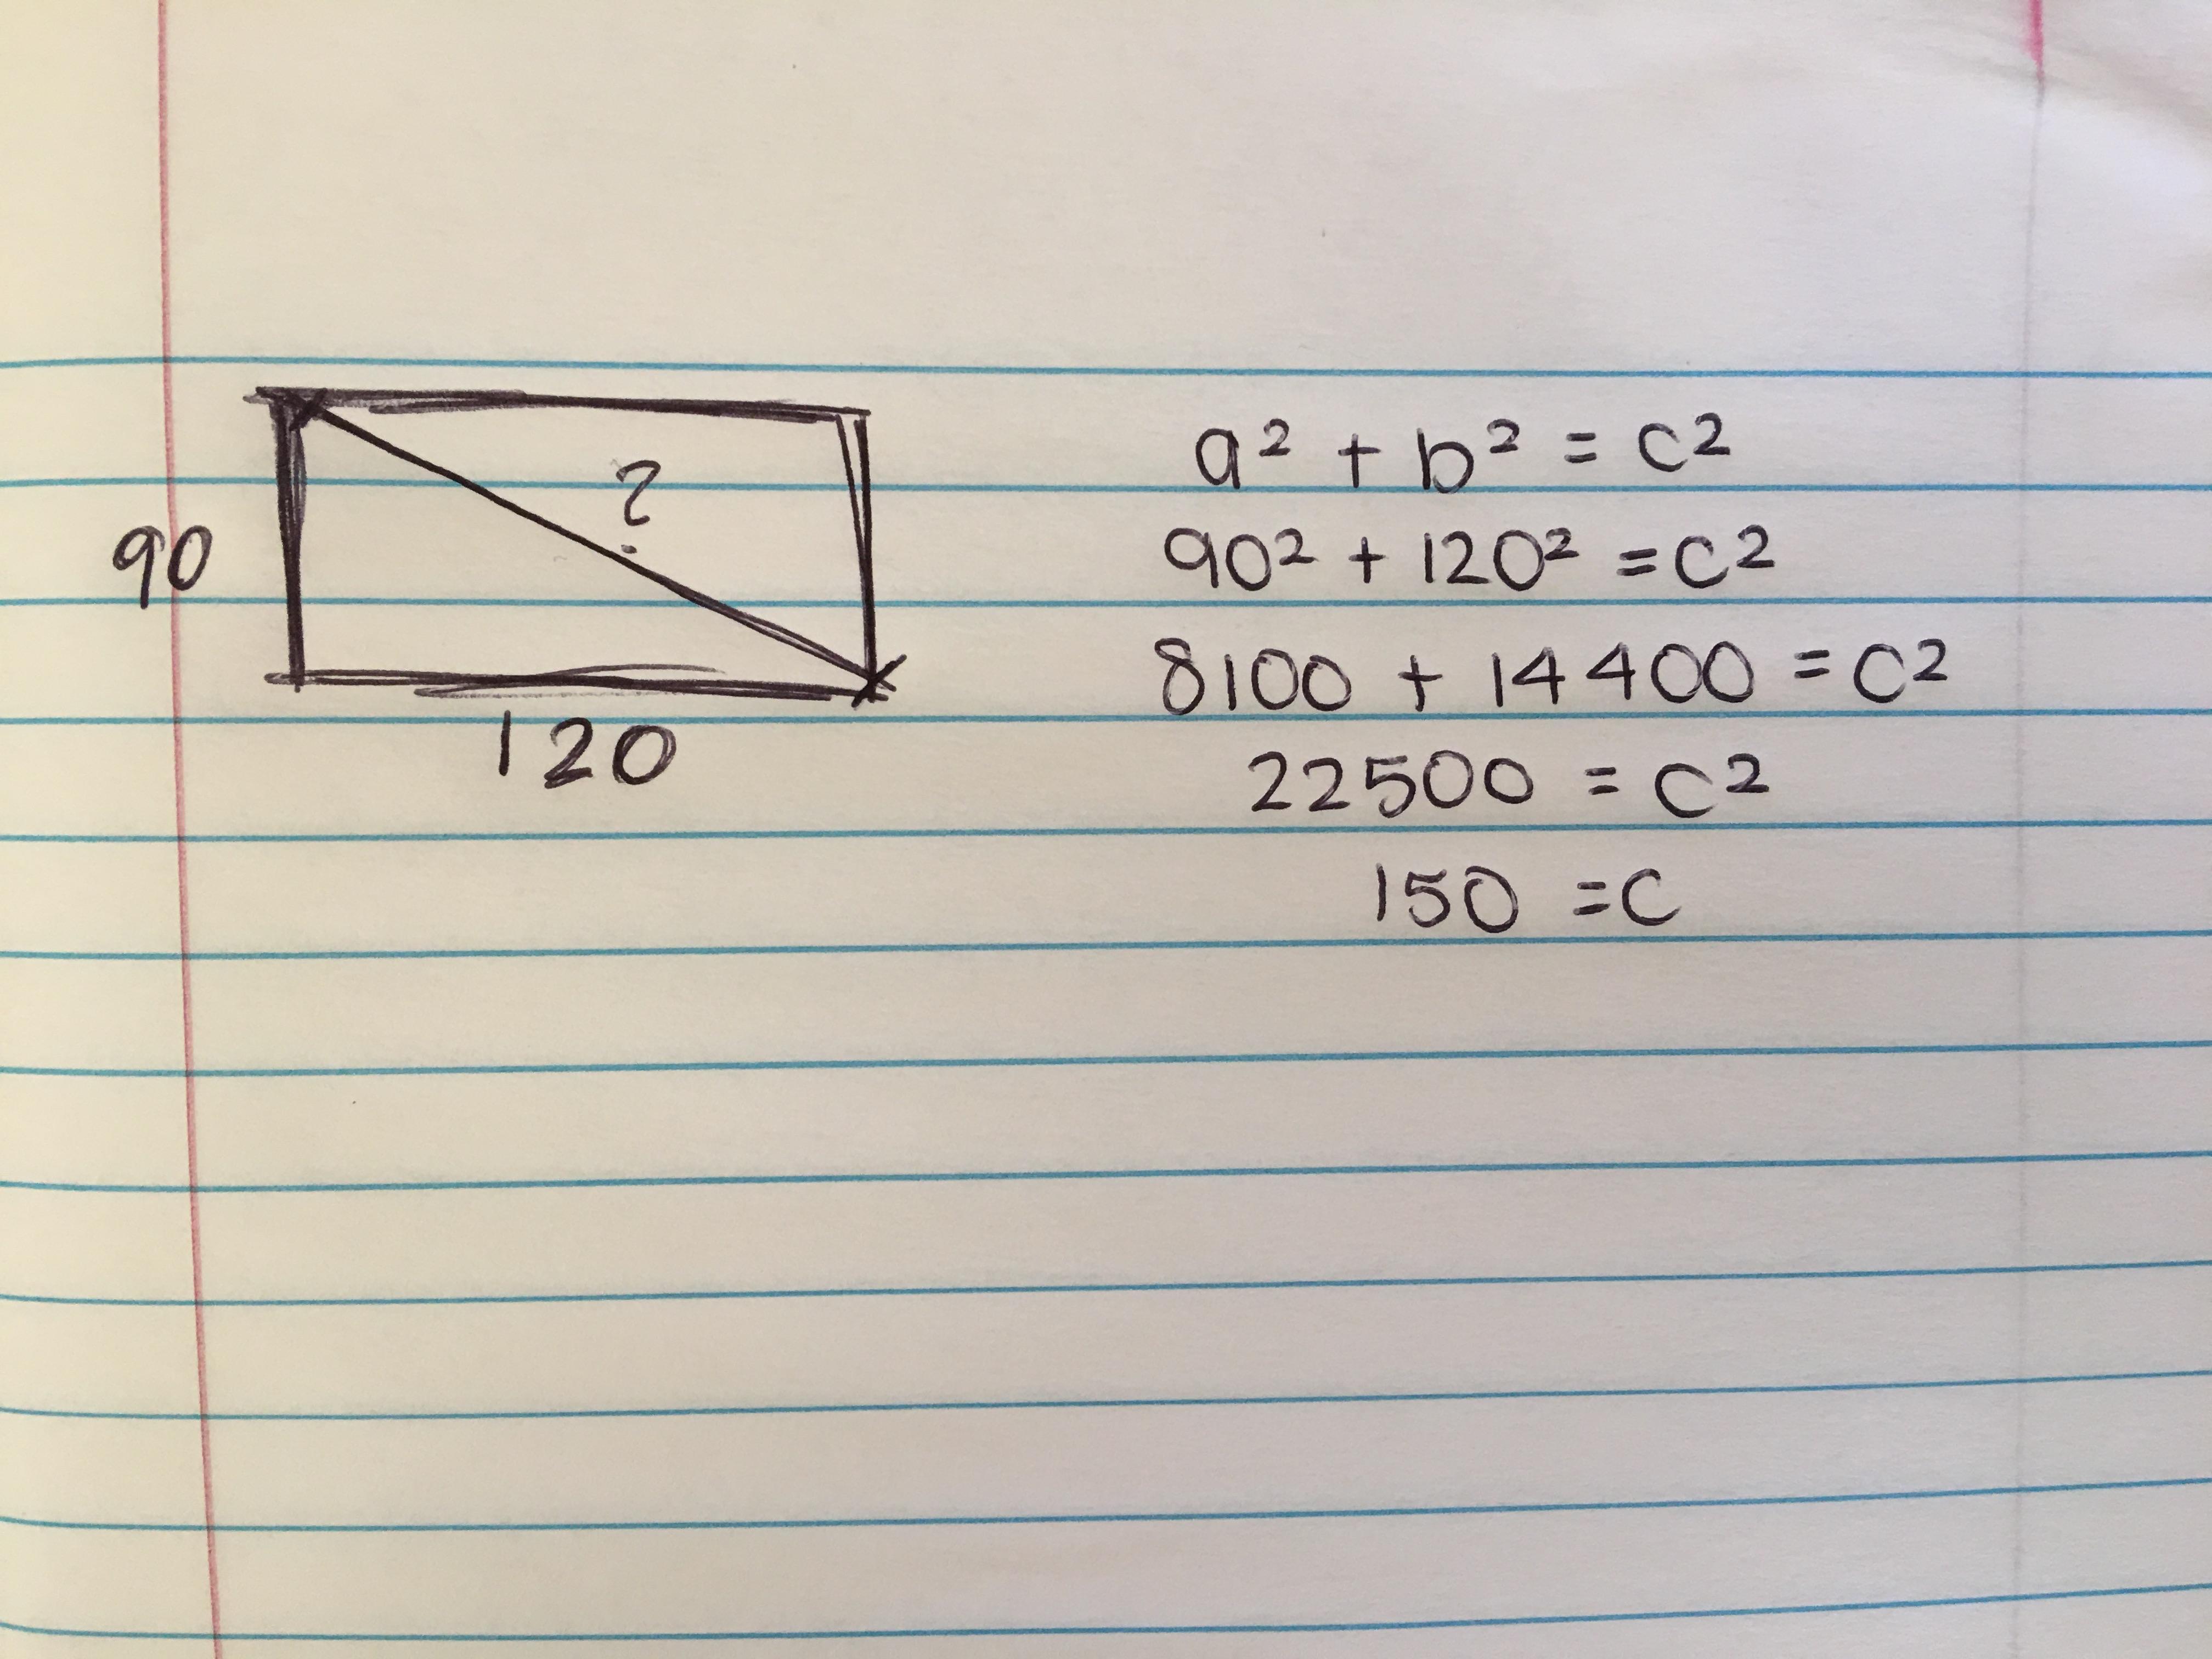 ?
90
120
a² + b² = c²
90² + 120² = c²
8100 + 14400 = c²
22500 = c²
150 = c